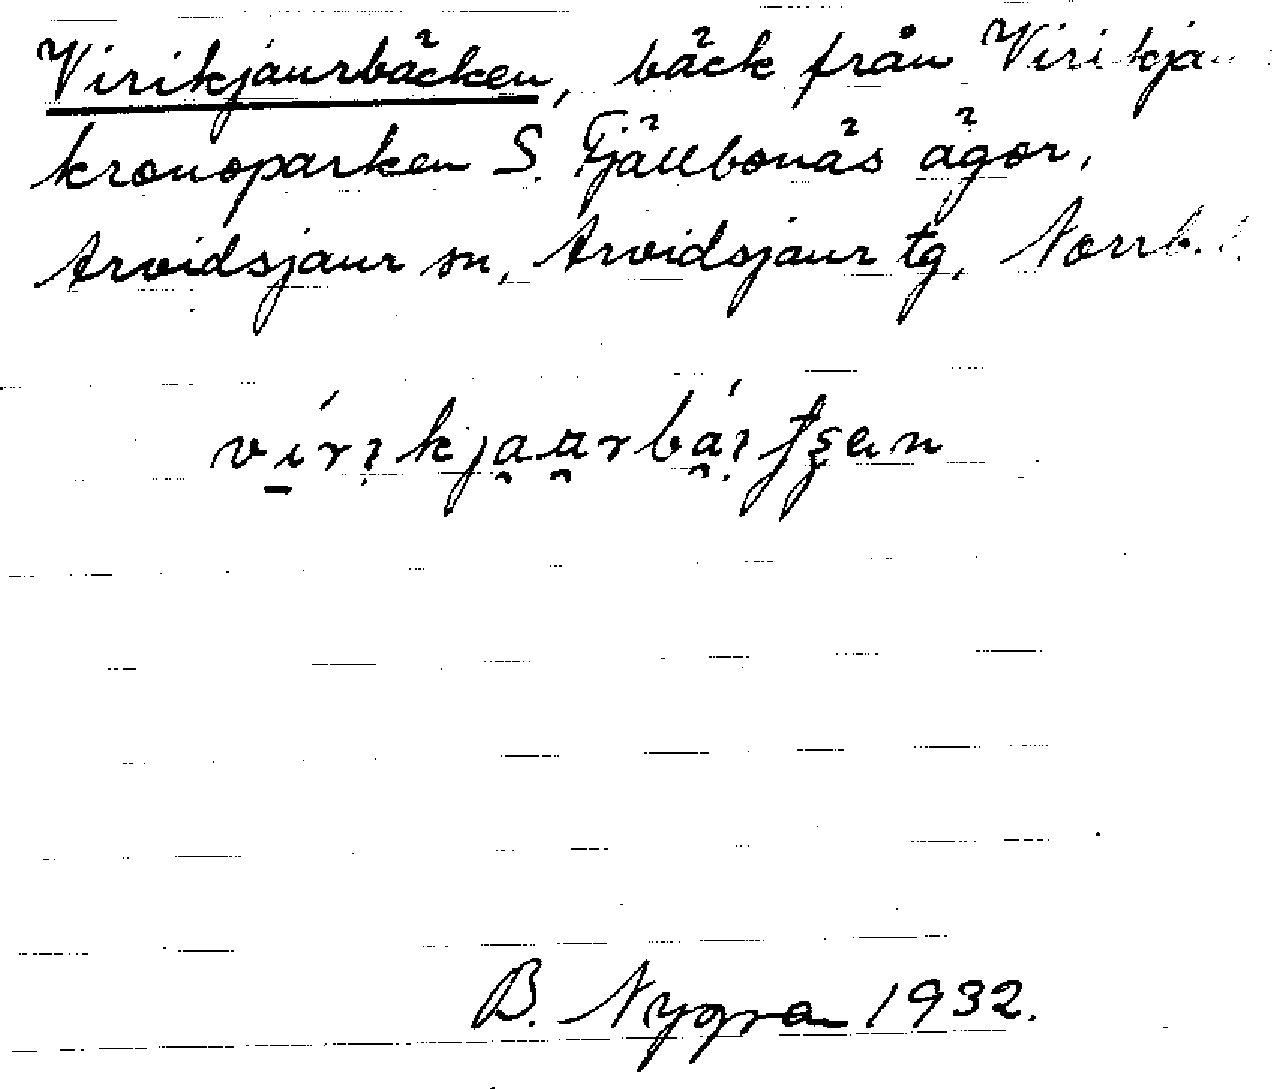 Virikjaurbäcken, bäck från Virikja
kronoparken S. Fjällbonäs ägor,
Arvidsjaur sn, Arvidsjaur tg, Norrb. l.
B. Nygren 1932.